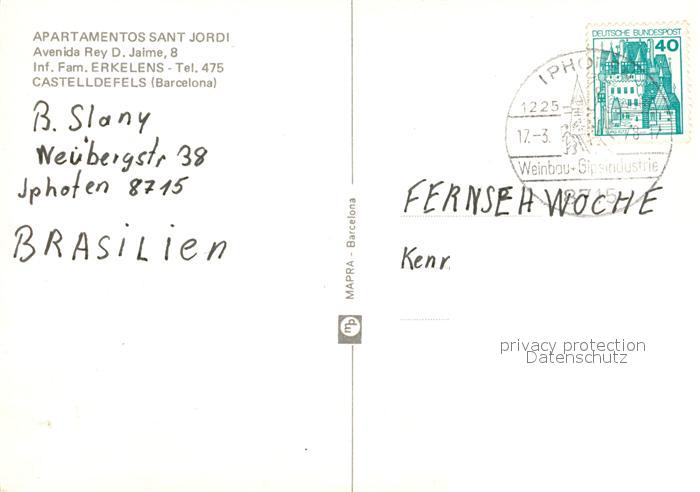 APARTAMENTOS SANT JORDI
Avenida Rey D. Jaime, 8
Inf. Fam. ERKELENS - Tel. 475
CASTELLDEFELS (Barcelona)
B. Slany
Neubergstr 38
Jphofen 8715
BRASiLien
MAPRA - Barcelona
mp
DEUTSCHE BUNDESPOST
40
1225
17.-3.
78-17
Weinbau+Gipsindustrie
8715
FERNSEHWOCHE
Kenr
privacy protection
Datenschutz